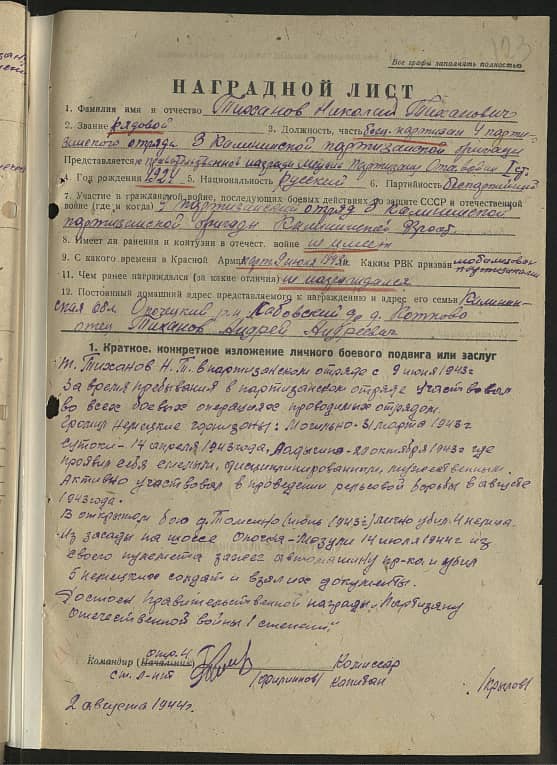 123
Все графы заполнять полностью
НАГРАДНОЙ ЛИСТ
1. Фамилия имя и отчество Тиханов Николай Тиханович
2. Звание рядовой 3. Должность, часть боец-партизан 4 парти-
занского отряда 3 Калининской партизанской бригады
Представляется к правительственной награде медали Партизану Отч. войны I ст.
4. Год рождения 1924 5. Национальность русский 6. Партийность беспартийный
7. Участие в гражданской войне, последующих боевых действиях по защите СССР и отечественной
войне (где и когда) 4 партизанский отряд 3 Калининской
партизанской бригады Калининский фронт
8. Имеет ли ранения и контузии в отечест. войне не имеет
9. С какого времени в Красной Армии 9 июня 1943г. Каким РВК призван мобилизован
партизанами
11. Чем ранее награждался (за какие отличия) не награждался
12. Постоянный домашний адрес представляемого к награждению и адрес его семьи Калинин-
ская обл. Опочецкий р-н, др. д.
отец Тиханов Андрей Андреевич
1. Краткое, конкретное изложение личного боевого подвига или заслуг
т. Тиханов Н. Т. в партизанском отряде с 9 июня 1943г.
За время пребывания в партизанском отряде участвовал
во всех боевых операциях проводимых отрядом.
Громил немецкие гарнизоны: Могильно-31 марта 1943г
Сутоки-14 апреля 1943 года, 22 октября 1943г где
проявил себя смелым, дисциплинированным, мужественным.
Активно участвовал в проведении рельсовой борьбы в августе
1943 года.
В открытом бою д. Томсино (июнь 1943г.) лично убил 4 немца.
Из засады на шоссе Опочка-Мозули 14 июля 1944г из
своего пулемета зажег автомашину пр-ка и убил
5 немецких солдат и взял их документы.
Достоин правительственной награды „Партизану
Отечественной войны 1 степени".
Командир (Начальник) отр. 4 Комиссар
ст. л-нт (Филиппов) капитан (Крылов)
2 августа 1944г.